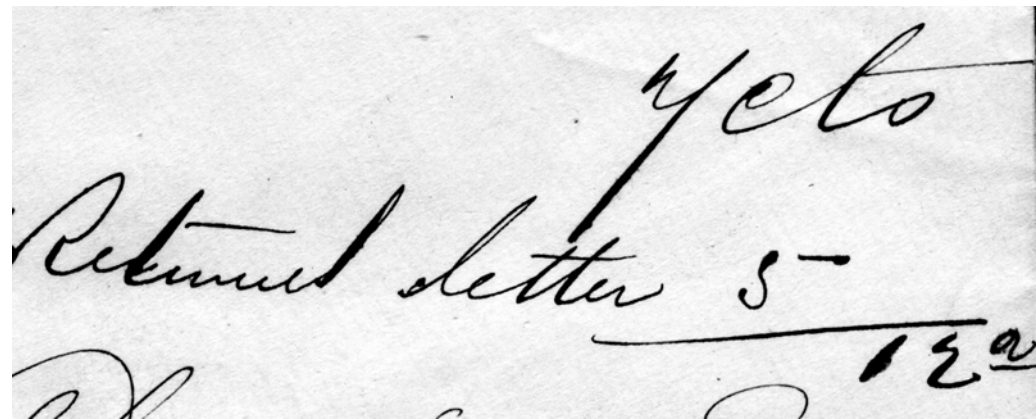 7 cts
Returned letter 5
12